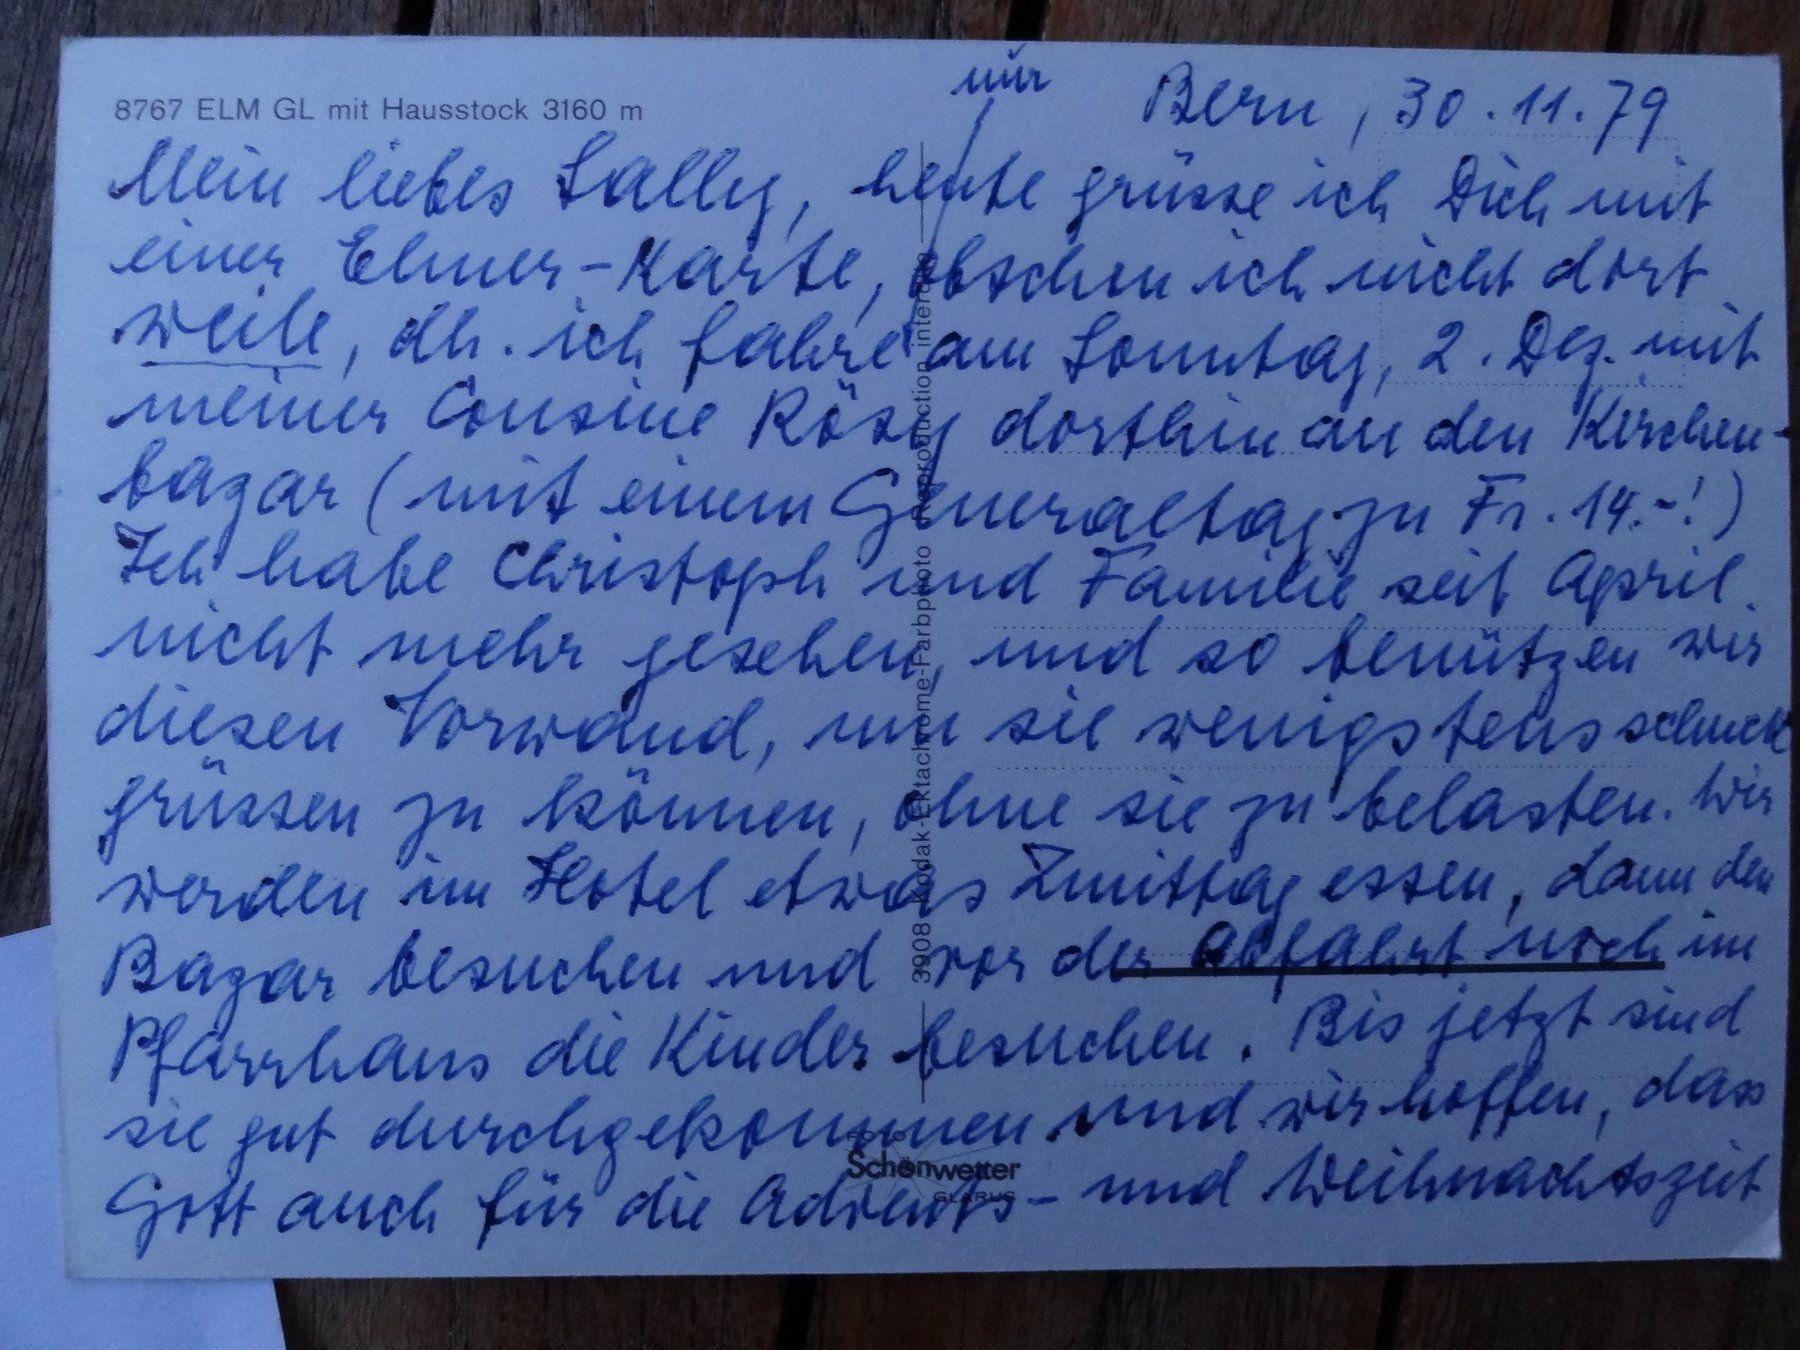 8767 ELM GL mit Hausstock 3160 m
nur
Bern, 30.11.79
Mein liebes Sally, heute grüsse ich Dich mit
einer Elmer-Karte, obschon ich nicht dort
weile, dh. ich fahre am Sonntag, 2. Dez. mit
meiner Cousine Rösy dorthin an den Kirchen-
bazar (mit einem Generaltag zu Fr. 14.-!)
Ich habe Christoph und Familie seit April
nicht mehr gesehen, und so benützen wir
diesen Vorwand, um sie wenigstens schnell
grüssen zu können, ohne sie zu belasten. Wir
werden im Hotel etwas Zmittag essen, dann den
Bazar besuchen und vor der Abfahrt noch im
Pfarrhaus die Kinder besuchen. Bis jetzt sind
sie gut durchgekommen und wir hoffen, dass
Gott auch für die Advents- und Weihnachtszeit
3908 Kodak-Ektachrome-Farbphoto Reproduction interdite
FOTO
Schönwetter
GLARUS